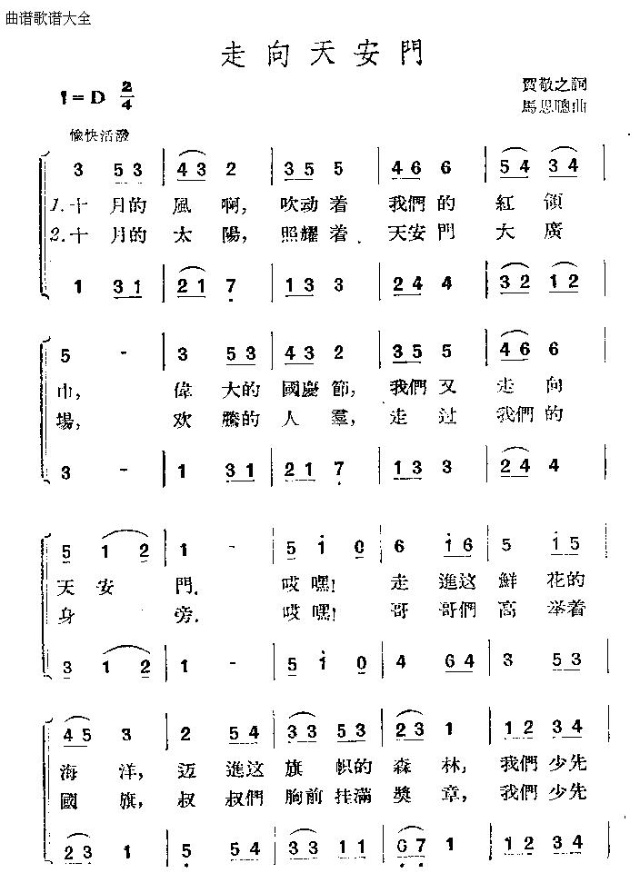 曲谱歌谱大全
走向天安門
1=D 2/4
賀敬之詞
馬思聰曲
愉快活潑
3 5 3 4 3 2 3 5 5 5 4 6 6 6 5 4 3 4
1.十月的風啊,吹动着我們的紅領
2.十月的太陽,照耀着天安門大廣
1 3 1 2 1 7 1 3 3 3 2 4 4 4 3 2 1 2
5 - 3 5 3 4 3 2 3 5 5 4 6 6
巾,偉大的國慶節,我們又走向
場,欢騰的人羣,走过我們的
3 - 1 3 1 2 1 7 1 3 3 2 4 4
5 1 2 1 - 5 1 0 6 1 6 5 1 5
天安門.哎嘿!走進这鮮花的
身旁.哎嘿!哥哥們高举着
3 1 2 1 - 5 1 0 4 6 4 3 5 3
4 5 3 2 5 4 3 3 5 3 2 3 1 1 2 3 4
海洋,迈進这旗帜的森林,我們少先
國旗,叔叔們胸前挂滿獎章,我們少先
2 3 1 5 5 4 3 3 1 1 6 7 1 1 2 3 4